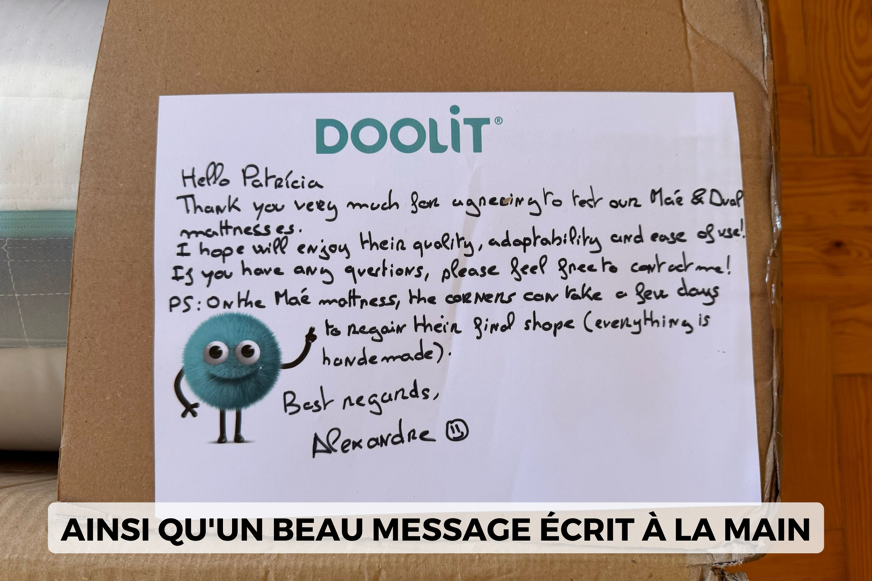 DOOLiT®
Hello Patrícia
Thank you very much for agreeing to test our Maé & Dual
mattresses.
I hope will enjoy their quality, adaptability and ease of use!
If you have any questions, please feel free to contact me!
PS: On the Maé mattness, the corners can take a few days
to regain their final shape (everything is
handemade).
Best regards,
Alexandre
AINSI QU'UN BEAU MESSAGE ÉCRIT À LA MAIN